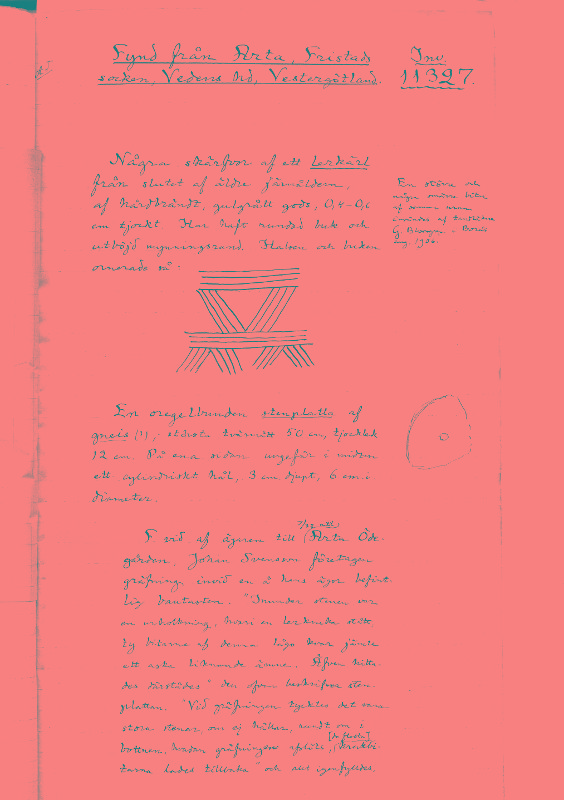 Fynd från Ärta, Fristads
socken, Vedens hd, Vestergötland.
Inv.
11327.
Några skärfvor af ett lerkärl
från slutet af äldre järnåldern,
af hårdbrändt, gulgrått gods, 0,4-0,6
cm tjockt. Har haft rundad buk och
utböjd mynningsrand. Halsen och buken
ornerade så:
En större och
några mindre bitar
af samma
G. - Borås
aug. 1906.
En oregelbunden stenplatta af
gneis (?), största tvärmått 50 cm, tjocklek
12 cm. På ena sidan ungefär i midten
ett cylindriskt hål, 3 cm djupt, 6 cm i
diameter.
F. vid af ägaren till Ärta Öde-
gården, Johan Svensson företagen
gräfning invid en å hans ägor befint-
lig bautasten. "Inunder stenen var
en urholkning, hvari en lerkruka stått
ty bitarna af denna lågo kvar jämte
ett aska liknande ämne. Äfven hitta-
des därstädes" den ofvan beskrifna sten-
plattan. "Vid gräfningen tycktes det vara
stora stenar, om ej hällar, rundt om i
bottnen.
tarna lades tillbaka" och allt igenfylldes.